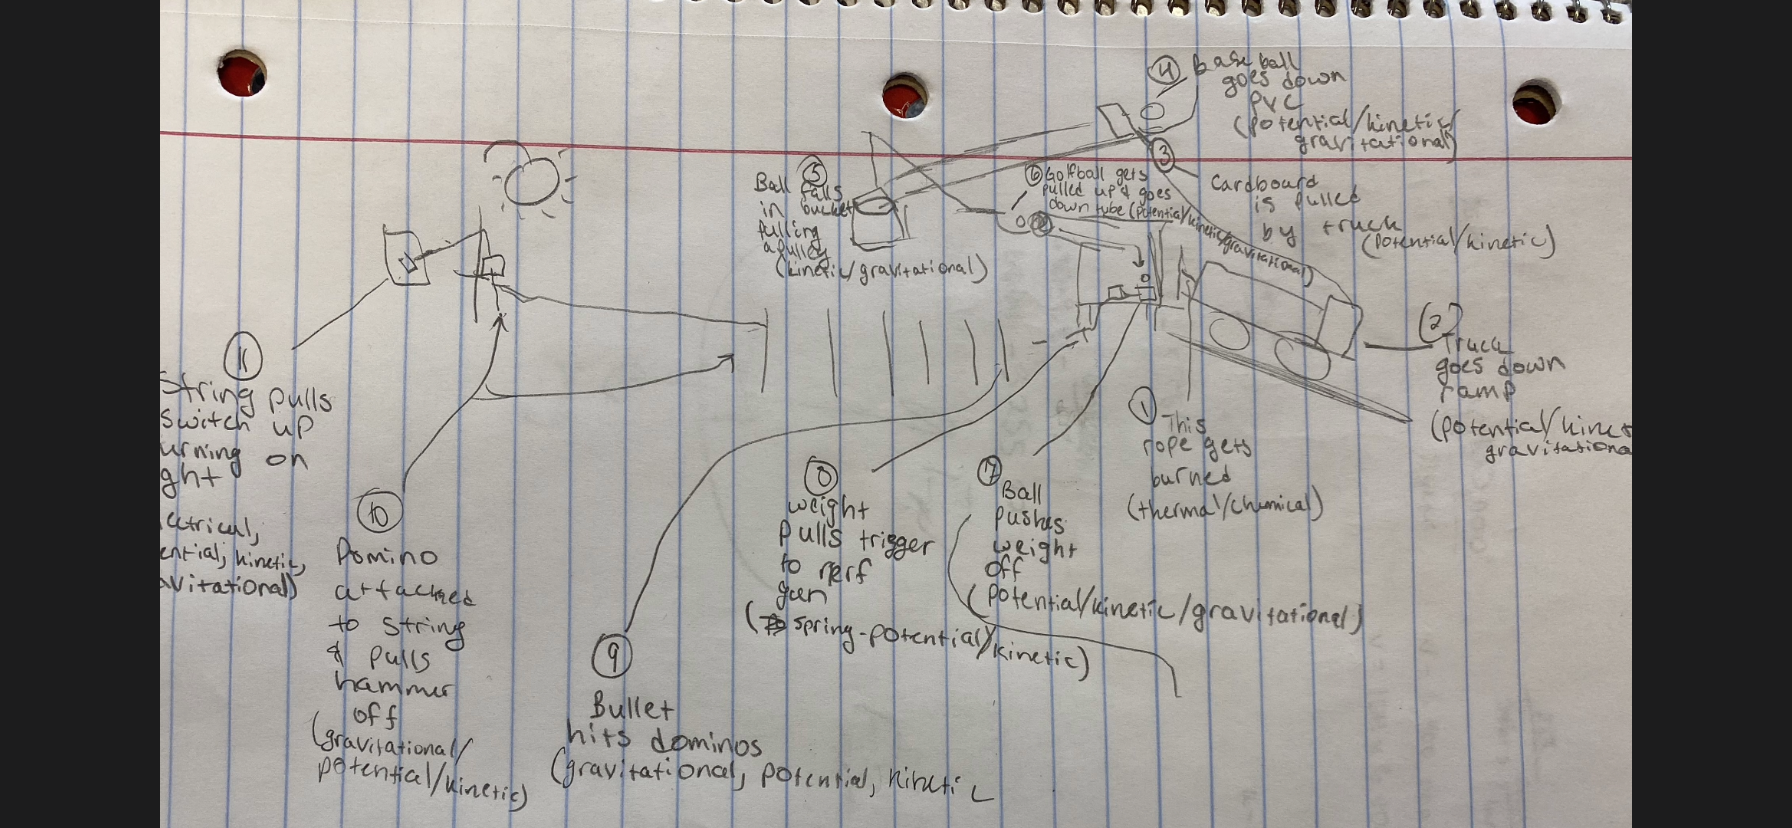 ④ Baseball
goes down
PVC
(potential/kinetic/
gravitational)
③
Cardboard
is pulled
by truck
(potential/kinetic)
⑤
Ball falls
in bucket
pulling
a pulley
(kinetic/gravitational)
⑥ Golfball gets
pulled up & goes
down tube (potential/kinetic/gravitational)
(2)
Truck
goes down
ramp
(potential/kinet
gravitationa
①
This
rope gets
burned
(thermal/chemical)
⑦
Ball
pushes
weight
off
(potential/kinetic/gravitational)
⑧
weight
pulls trigger
to nerf
gun
(spring-potential/kinetic)
⑨
Bullet
hits dominos
(gravitational, potential, kinetic
⑩
Domino
attached
to string
& pulls
hammer
off
(gravitational/
potential/kinetic)
⑪
String pulls
switch up
urning on
ght
ectrical,
ential, kinetic,
avitational)